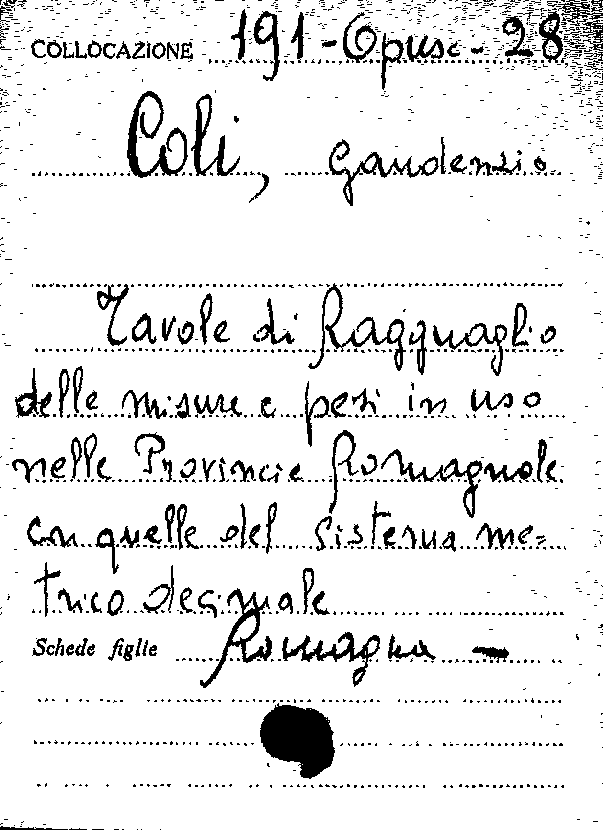 COLLOCAZIONE 191-Opusc-28
Coli, Gaudenzio
Tavole di Ragguaglio
delle misure e pesi in uso
nelle Provincie Romagnole
con quelle del sistema me=
trico decimale
Schede figlie Romagna -